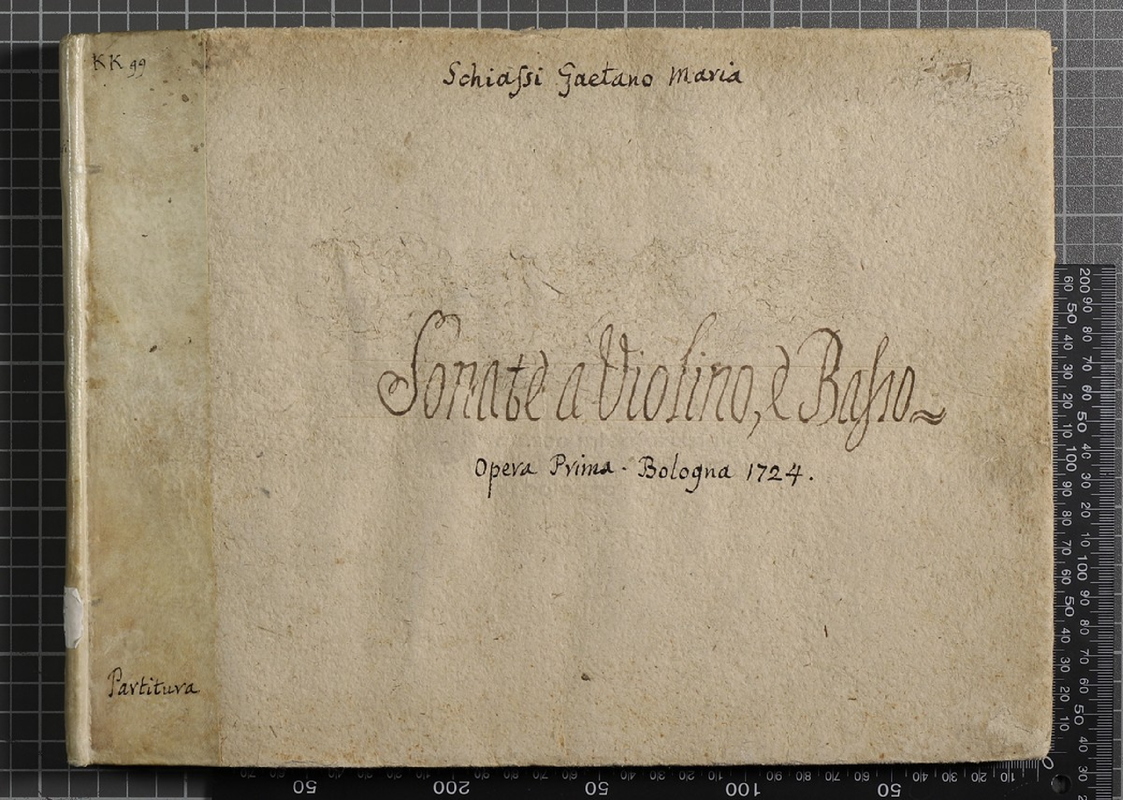 KK 99
Schiaſsi Gaetano Maria
Sonate a Violino, e Baſso
Opera Prima - Bologna 1724.
Partitura